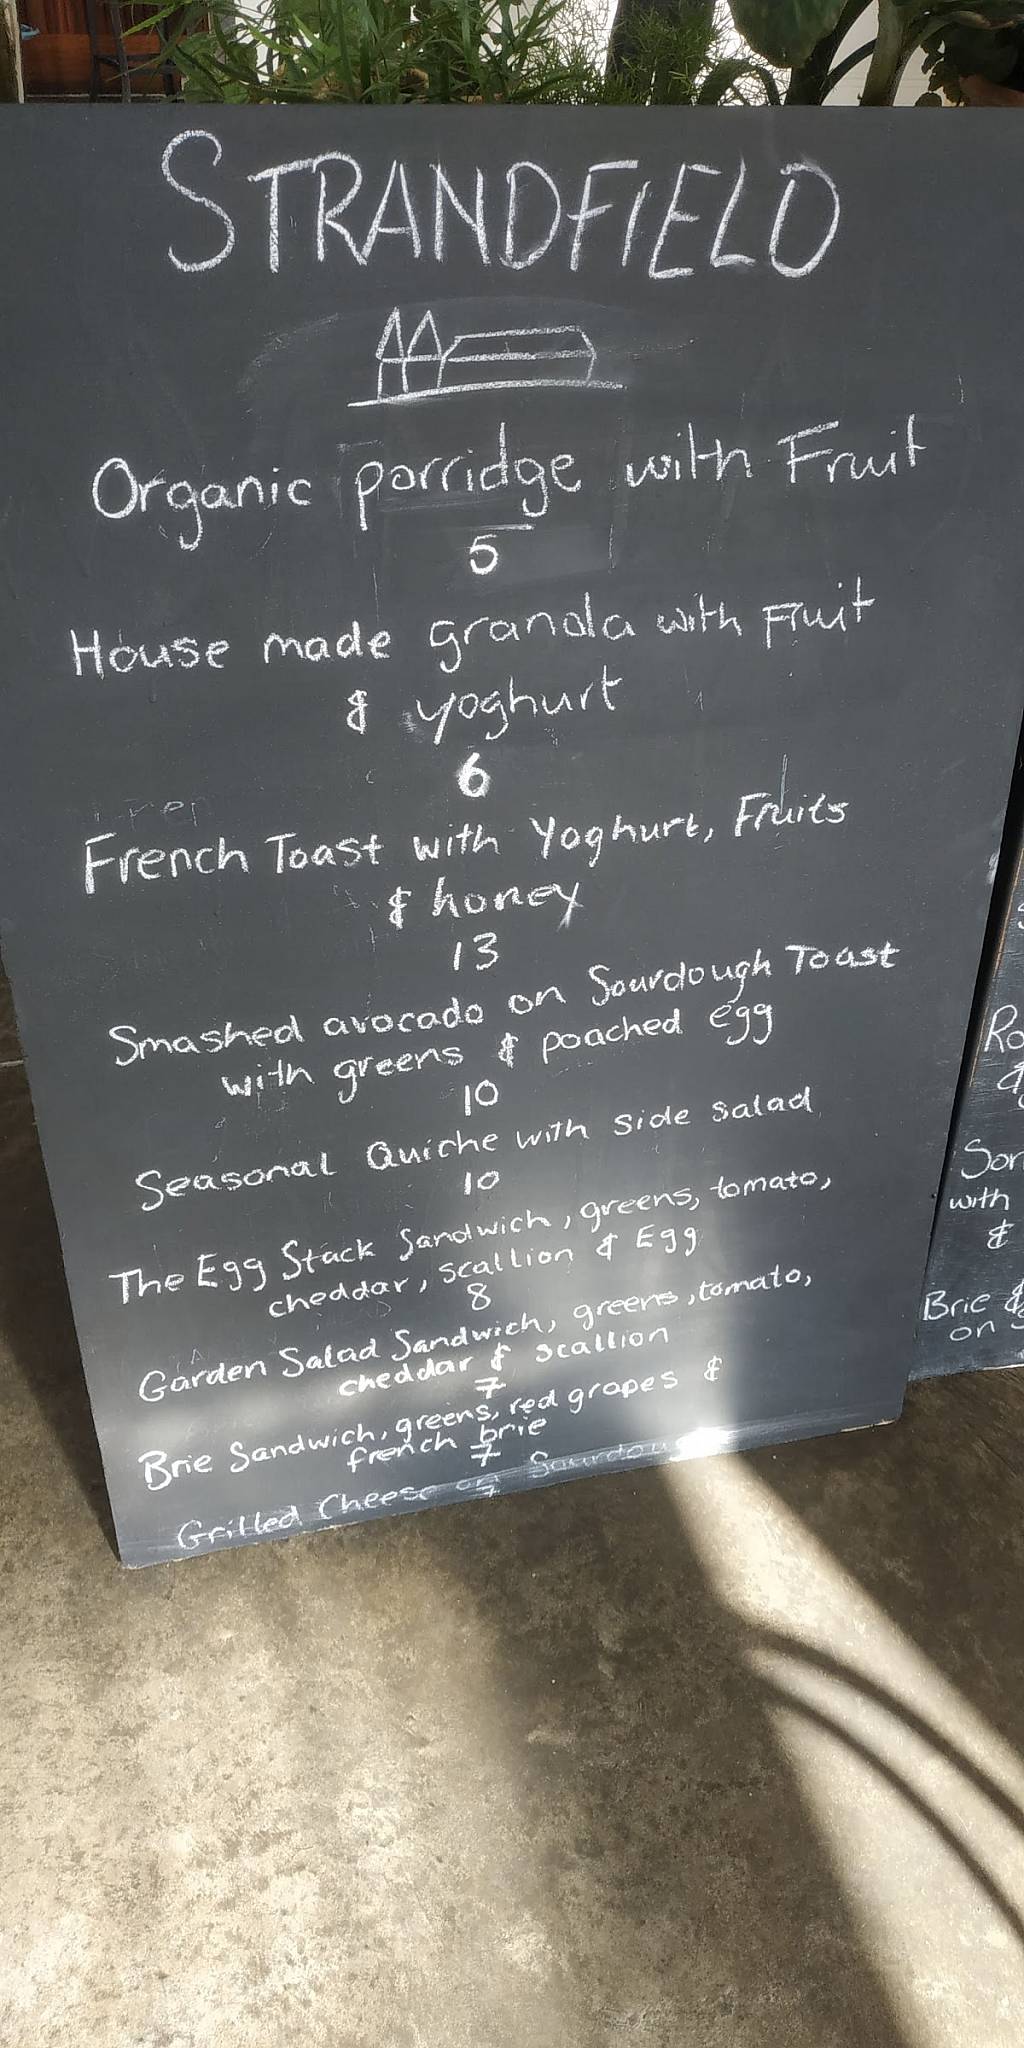 STRANDFIELD
Organic porridge with Fruit
5
House made granola with Fruit
& yoghurt
6
French Toast with Yoghurt, Fruits
& honey
13
Smashed avocado on Sourdough Toast
with greens & poached egg
10
Seasonal Quiche with side salad
10
The Egg Stack Sandwich, greens, tomato,
cheddar, scallion & Egg
8
Garden Salad Sandwich, greens, tomato,
cheddar & scallion
7
Brie Sandwich, greens, red grapes &
french brie
7
Grilled Cheese on Sourdough
7
Ro
&
Sor
with
&
Brie &
on S